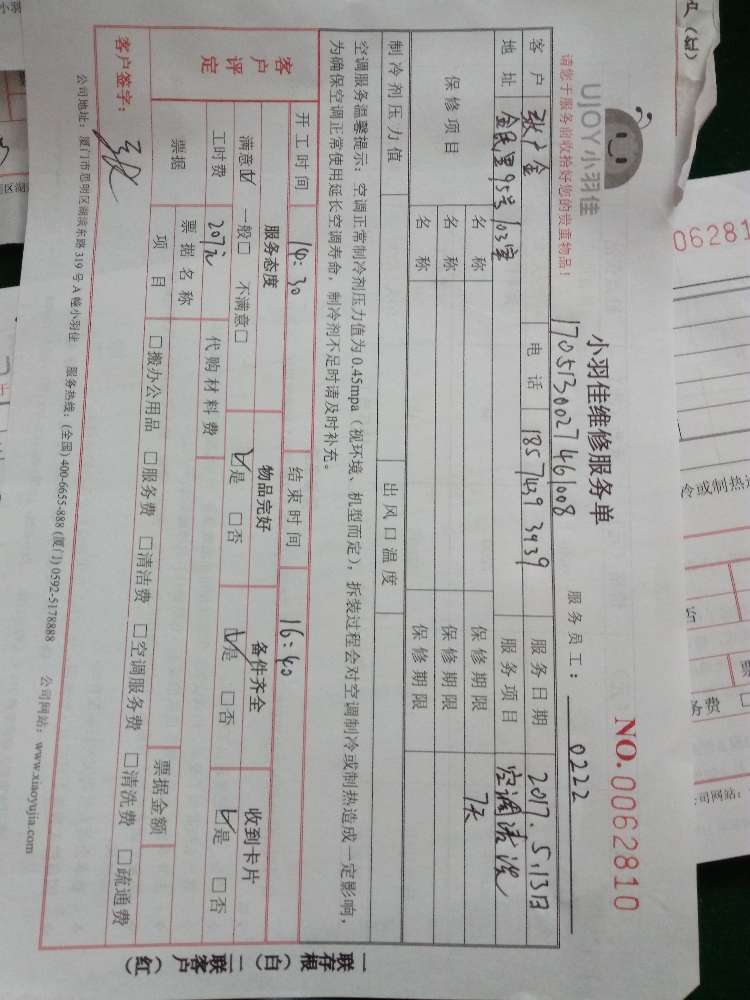 UJOY小羽佳
请您于服务前收拾好您的贵重物品！
小羽佳维修服务单
NO.0062810
1705130027461008
服务员工：0222
客户 电话 1857439 3939 服务日期 2017.5.13日
地址 金民里95号103室 服务项目 空调清洗
保修项目 名称 保修期限 7天
名称 保修期限
名称 保修期限
制冷剂压力值 出风口温度
空调服务温馨提示：空调正常制冷剂压力值为0.45mpa（视环境、机型而定），拆装过程会对空调制冷或制热造成一定影响，
为确保空调正常使用延长空调寿命，制冷剂不足时请及时补充。
开工时间 14：30 结束时间 16：40
客户评定 服务态度 物品完好 备件齐全 收到卡片
满意☑ 一般□ 不满意□ ☑是 □否 ☑是 □否 ☑是 □否
工时费 207元 代购材料费
票据 票据名称 票据金额
项目 □搬办公用品 □服务费 □清洁费 □空调服务费 □清洗费 □疏通费
客户签字：
公司地址：厦门市思明区湖滨东路319号A幢小羽佳 服务热线：(全国) 400-6655-888 (厦门) 0592-5178888 公司网站：www.xiaoyujia.com
一联存根（白） 一联客户（红）
06281
冷或制热